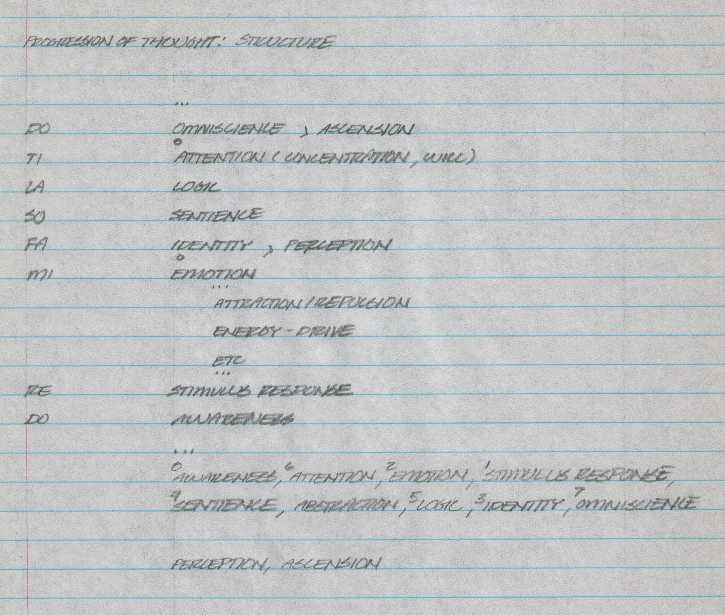 PROGRESSION OF THOUGHT: STRUCTURE
...
DO OMNISCIENCE , ASCENSION
TI ATTENTION (CONCENTRATION, WILL)
LA LOGIC
SO SENTIENCE
FA IDENTITY , PERCEPTION
MI EMOTION
...
ATTRACTION/REPULSION
ENERGY-DRIVE
ETC
...
RE STIMULUS RESPONSE
DO AWARENESS
...
0 AWARENESS, 6 ATTENTION, 2 EMOTION, 1 STIMULUS RESPONSE,
4 SENTIENCE, ABSTRACTION, 5 LOGIC, 3 IDENTITY, 7 OMNISCIENCE
PERCEPTION, ASCENSION